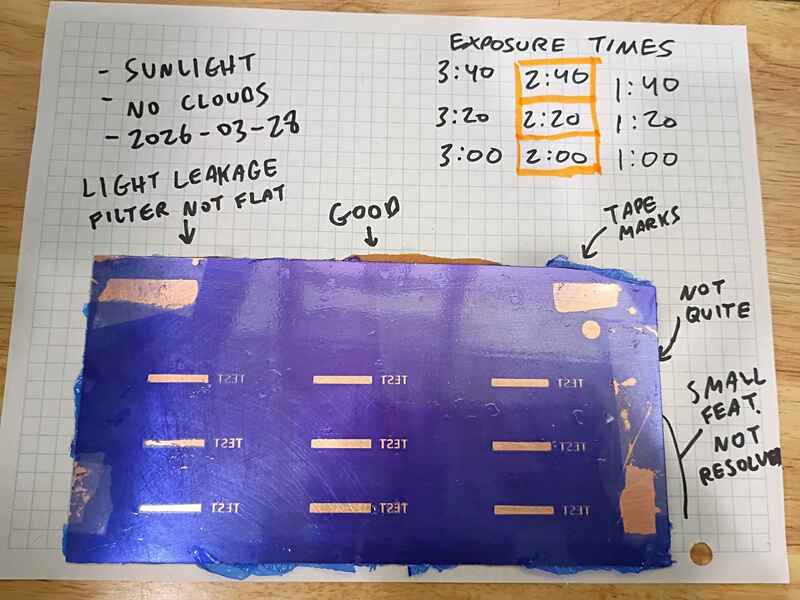 - SUNLIGHT
- NO CLOUDS
- 2026-03-28
EXPOSURE TIMES
3:40 2:40 1:40
3:20 2:20 1:20
3:00 2:00 1:00
LIGHT LEAKAGE
FILTER NOT FLAT
GOOD
TAPE
MARKS
NOT
QUITE
SMALL
FEAT.
NOT
RESOLVED
TEST TEST TEST
TEST TEST TEST
TEST TEST TEST